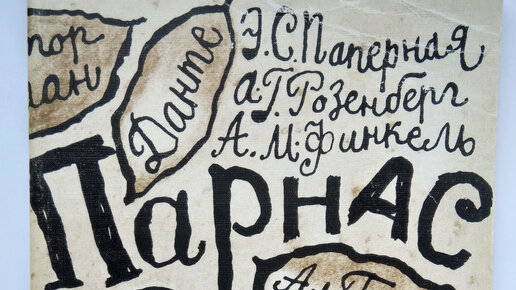 Данте
Э.С.Паперная
А.Г.Розенберг
А.М.Финкель
Парнас